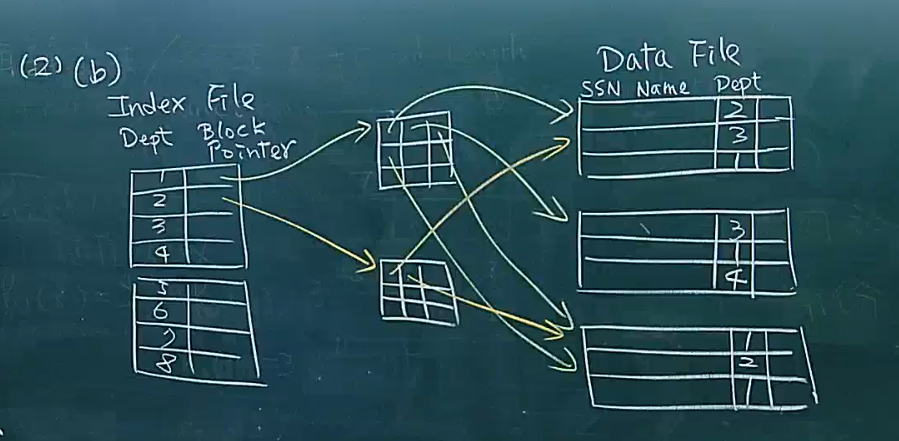 (2) (b)
Index File
Dept Block Pointer
1
2
3
4
5
6
7
8
Data File
SSN Name Dept
2
3
1
3
1
4
1
2
1